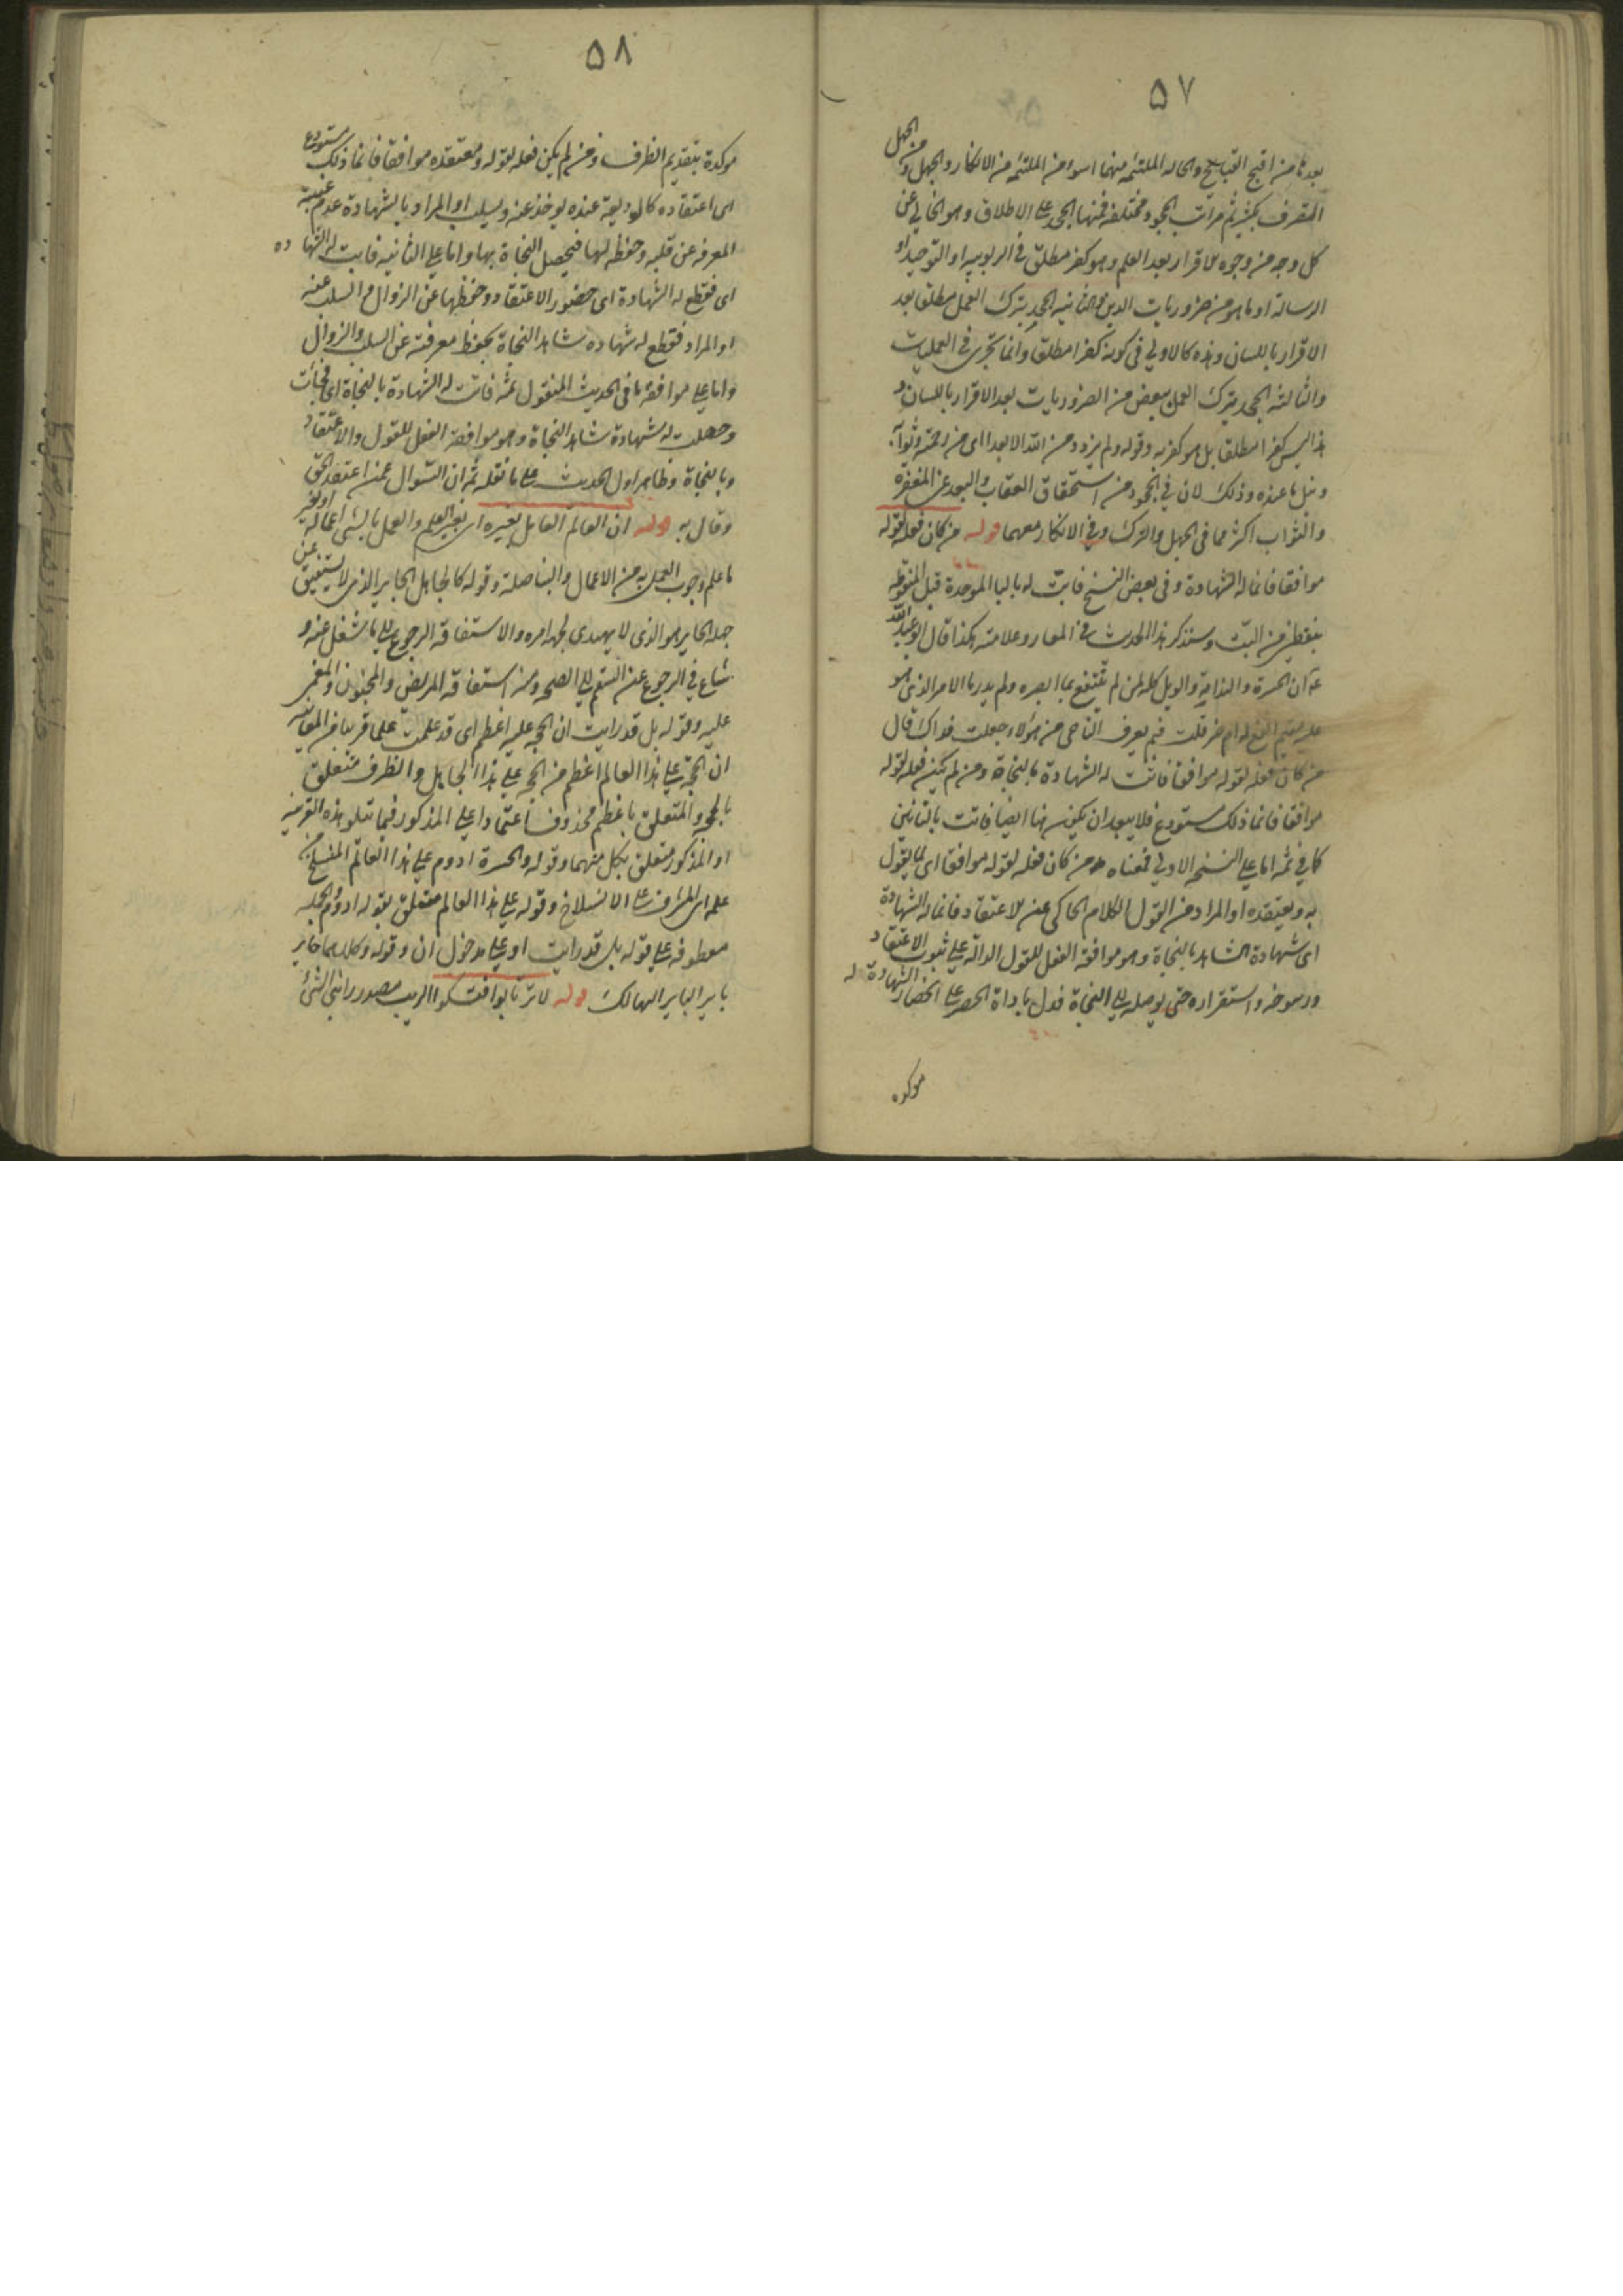 ٥٧
بعدنا من اقبح القبايح والحاله الملتئمه منهما اسوء من الملتئمه من الانكار والجهل ومن الجهل
المقرف بكثير ثم مراتب الجحود مختلفه فمنها الجحد على الاطلاق وهو الخالي عن
كل وجه من وجوه الاقرار بعد العلم وهو كفر مطلق في الربوبيه او التوحيد او
الرسالة او ما هو من ضروريات الدين والثانيه الجحد بترك العمل مطلقا بعد
الاقرار باللسان وهذه كالاولي في كونه كفرا مطلقا وانما تجري في العمليات
والثالثه الجحد بترك العمل ببعض من الضروريات بعد الاقرار باللسان و
هذا ليس كفرا مطلقا بل هو كفر به وقوله ولم يزدد من الله الا بعدا اي من رحمته وثوابه
ونيل ما عنده وذلك لان في الجحود من استحقاق العقاب والبعد عن المغفره
والثواب اكثر مما في الجهل والترك وفي الانكار معهما قوله من كان فعله لقوله
موافقا فانما له الشهادة وفي بعض النسخ فابت له بالبا الموحدة قبل المنقوطه
بنقطتين من البت وسنذكر هذا الحديث في المعار وعلامته هكذا قال ابو عبد الله
عه ان الحسرة والندامة والويل كله لمن لم ينتفع بما ابصره ولم يدر ما الامر الذي هو
عليه مقيم انفع له ام ضر قلت فبم يعرف الناجى من هؤلاء جعلت فداك قال
من كان فعله لقوله موافقا فاتت له الشهادة بالنجاة ومن لم يكن فعله لقوله
موافقا فانما ذلك مستودع فلا يبعد ان يكون هنا ايضا فاتت بالتائين
كما في ثمه اما على النسخه الاولي فمعناه من كان فعله لقوله موافقا اي لما يقول
به ويعتقده او المراد من القول الكلام الحاكى عن الاعتقاد فانما له الشهادة
اى شهادة الشاهد بالنجاة وهو موافقه الفعل للقول الدالة على ثبوت الاعتقاد
ورسوخه واستقراره حتى يوصله الي النجاة فدل باداة الحصر على انحصار الشهادة له
موكده
٥٨
موكدة بتقديم الظرف ومن لم يكن فعله لقوله ومعتقده موافقا فانما ذلك مستودع
اى اعتقاده كالوديعة عنده يوخذ عنه ويسلب او المراد بالشهادة عدم غيبة
المعرفه عن قلبه وحفظه لها فيحصل النجاة بها واما على الثانيه فابت له الشهاده
اى فقطع له الشهادة اى حضور الاعتقاد وحفظها عن الزوال والسلب عنه
او المراد فقطع له شهاده شاهد النجاة بحفظ معرفته عن السلب والزوال
واما على موافقه ما في الحديث المنقول ثمه فاتت له الشهادة بالنجاة اى فجائت
وحصلت له شهادة شاهد النجاة وهو موافقة الفعل للقول والاعتقاد
وبالنجاة وظاهر اول الحديث على ما نقله ثم ان السوال عمن اعتقد الحق
وقال به قوله ان العالم العامل بغيره اى بغير العلم والعمل بالشى اعماله او لغير
ما علم وجوب العمل به من الاعمال وقوله كالجاهل الحاير الذى لا يستفيق عن
جهله الحاير هو الذى لا يهتدى لجهة امره والاستفاقه الرجوع الي ما شغل عنه و
شاع في الرجوع عن السقم الي الصحه ومنه استفاقه المريض والمجنون والمغمى
عليه وقوله بل قد رايت ان الحجه عليه اعظم اى قد علمت علما قريبا من المعاينه
ان الحجة على هذا العالم اعظم من الحجه على هذا الجاهل والظرف متعلق
بالحجه والمتعلق باعظم محذوف اعتمادا على المذكور فيما تتلو هذه القرينه
او المذكور متعلق بكل منهما وقوله والحسرة ادوم على هذا العالم المنسلخ من
علمه اى المشرف على الانسلاخ وقوله على هذا العالم متعلق بقوله ادوم والجمله
معطوفه على قوله بل قد رايت او على مدخول ان وقوله وكلاهما حاير
باير الباير الهالك قوله لا ترتابوا فتشكوا الريب مصدر رابني الشئ